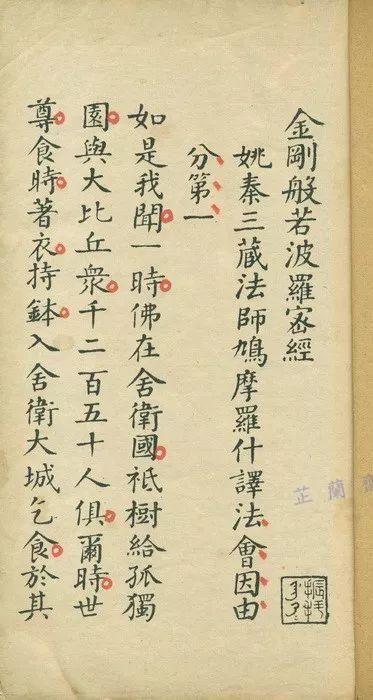 金剛般若波羅密經
姚秦三藏法師鳩摩羅什譯法會因由
分第一
如是我聞一時佛在舍衛國祇樹給孤獨
園與大比丘衆千二百五十人俱爾時世
尊食時著衣持鉢入舍衛大城乞食於其
蘭芷